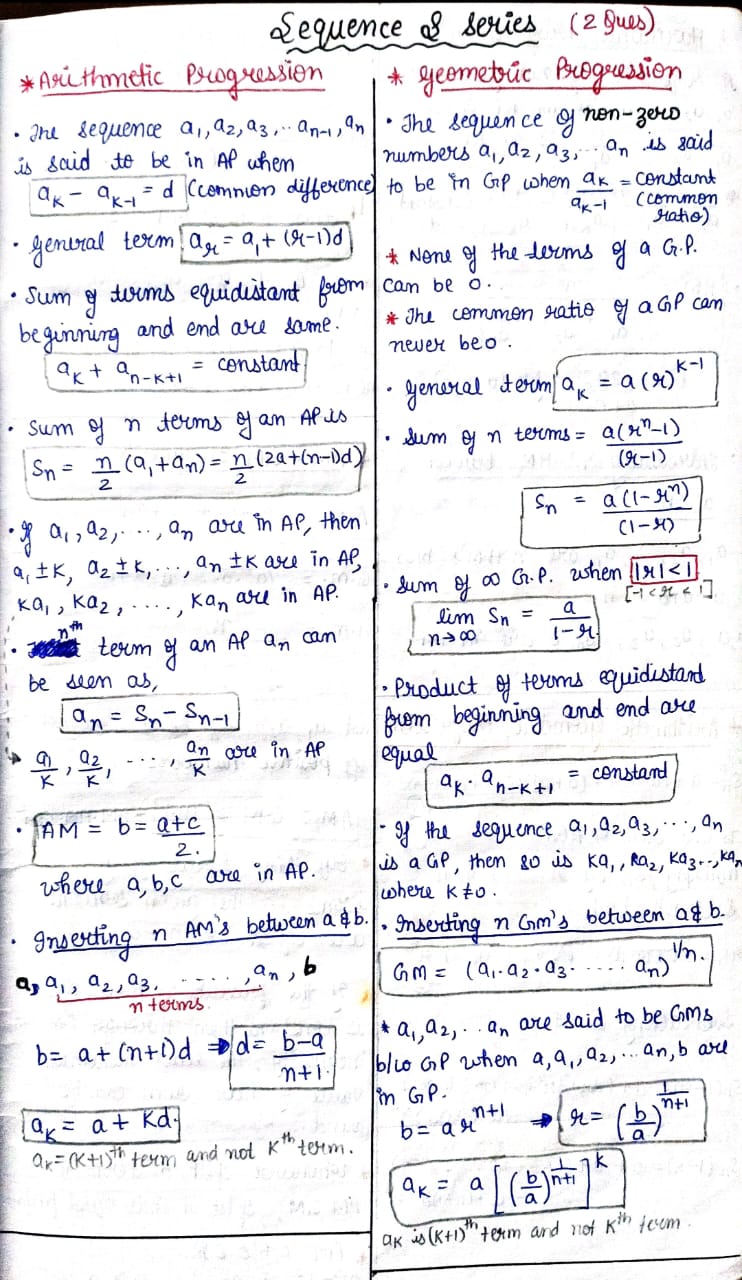 Sequence & Series (2 Ques)
* Arithmetic Progression
• The sequence a₁, a₂, a₃, .. aₙ₋₁, aₙ
is said to be in AP when
aₖ - aₖ₋₁ = d (common difference)
• General term aᵣ = a₁ + (r-1)d
• Sum of terms equidistant from
beginning and end are same.
aₖ + aₙ₋ₖ₊₁ = constant
• Sum of n terms of an AP is
Sₙ = n/2 (a₁ + aₙ) = n/2 (2a + (n-1)d)
• If a₁, a₂, ..., aₙ are in AP, then
a₁ ± K, a₂ ± K, ..., aₙ ± K are in AP,
Ka₁, Ka₂, ....., Kaₙ are in AP.
• nᵗʰ term of an AP aₙ can
be seen as,
aₙ = Sₙ - Sₙ₋₁
→ a₁/K, a₂/K, ..., aₙ/K are in AP
• AM = b = a+c/2.
where a, b, c are in AP.
• Inserting n AM's between a & b.
a, a₁, a₂, a₃, ......, aₙ, b
n terms
b = a + (n+1)d ⇒ d = b-a/n+1.
aₖ = a + Kd.
aₖ = (K+1)ᵗʰ term and not Kᵗʰ term.
* Geometric Progression
• The sequence of non-zero
numbers a₁, a₂, a₃, ... aₙ is said
to be in GP when aₖ/aₖ₋₁ = constant
(common
ratio)
* None of the terms of a G.P.
can be 0.
* The common ratio of a GP can
never be 0.
• General term aₖ = a(r)ᴷ⁻¹
• Sum of n terms = a(rⁿ-1)/(r-1)
Sₙ = a(1-rⁿ)/(1-r)
• Sum of ∞ G.P. when |r| < 1
[-1 < r < 1]
lim n→∞ Sₙ = a/1-r
• Product of terms equidistand
from beginning and end are
equal
aₖ . aₙ₋ₖ₊₁ = constand
- If the sequence a₁, a₂, a₃, ..., aₙ
is a GP, then so is Ka₁, Ka₂, Ka₃..., Kaₙ
where K ≠ 0.
• Inserting n GM's between a & b.
GM = (a₁ . a₂ . a₃ ..... aₙ)^1/n.
* a₁, a₂, .. aₙ are said to be GMs
b/w GP when a, a₁, a₂, ... aₙ, b are
in GP.
b = arⁿ⁺¹ → r = (b/a)^1/n+1
aₖ = a [(b/a)^1/n+1]^k
aₖ is (K+1)ᵗʰ term and not Kᵗʰ term.